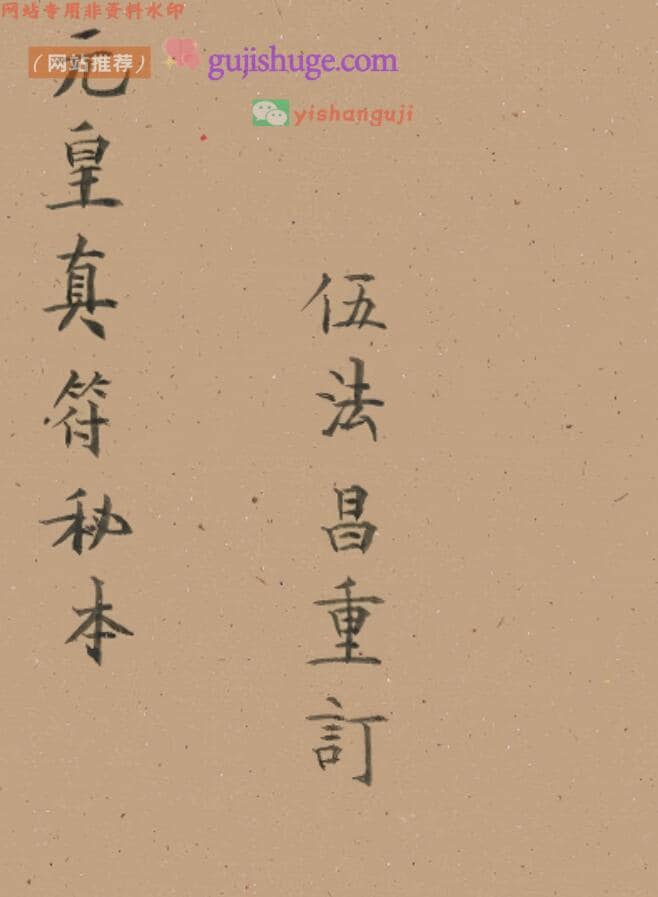 网站专用非资料水印
（网站推荐） gujishuge.com
yishanguji
伍法昌重訂
元皇真符秘本